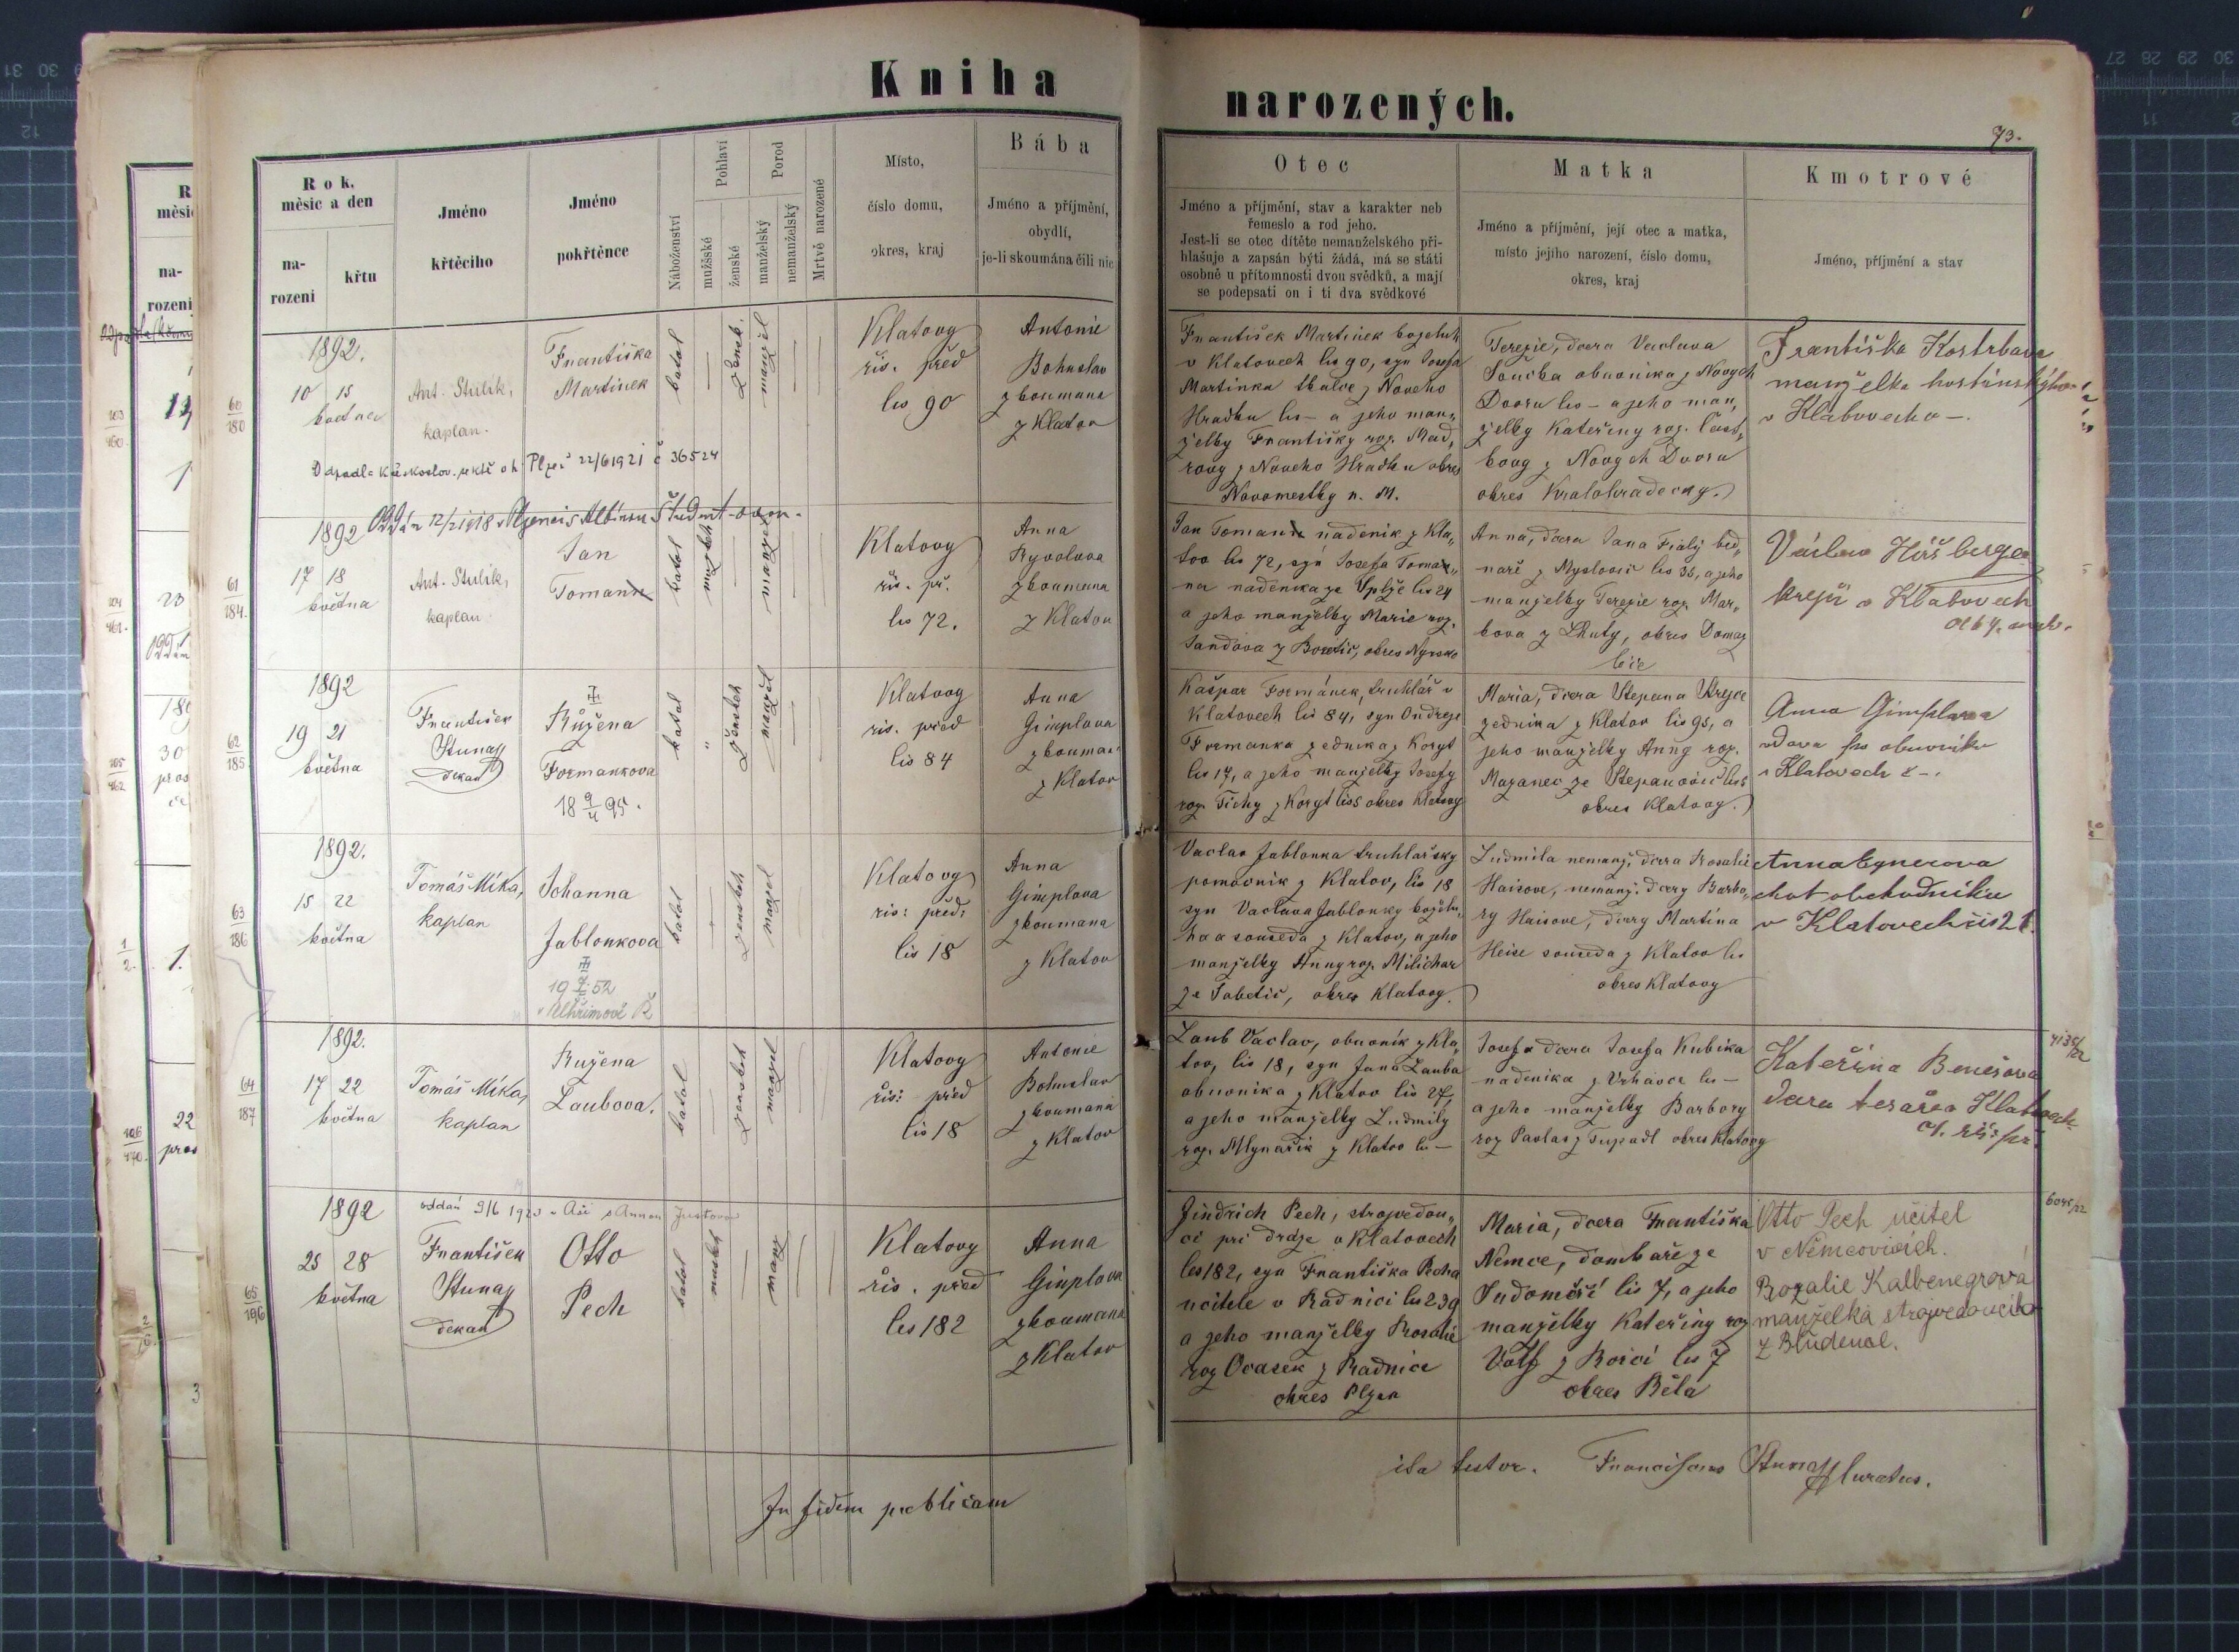 Kniha
narozených.
93.
Rok,
měsíc a den
na-
rozeni
křtu
Jméno
křtěcího
Jméno
pokřtěnce
Náboženství
Pohlaví
mužšské
ženské
Porod
manželský
nemanželský
Mrtvě narozené
Místo,
číslo domu,
okres, kraj
Bába
Jméno a příjmění,
obydlí,
je-li skoumána čili nic
Otec
Jméno a příjmění, stav a karakter neb
řemeslo a rod jeho.
Jest-li se otec dítěte nemanželského při-
hlašuje a zapsán býti žádá, má se státi
osobně u přítomnosti dvou svědků, a mají
se podepsati on i ti dva svědkové
Matka
Jméno a příjmění, její otec a matka,
místo jejího narození, číslo domu,
okres, kraj
Kmotrové
Jméno, příjmění a stav
60
180
1892.
10 15
května
Ant. Stulík,
kaplan.
Františka
Martinek
katol
žensk.
manžel
Klatovy
řís. před
čis 90
Antonie
Bohuslav
zkoumana
z Klatov
František Martinek kozeluh
v Klatovech čis 90, syn Josefa
Martinka tkalce z Noveho
Hradku čis - a jeho man,,
želky Františky roz. Mad,,
rovy z Noveho Hradku okres
Novomestky n. M.
Terezie, dcera Vaclava
Součka obuvnika z Novych
Dvoru čis - a jeho man,,
želky Kateřiny roz. Čast,,
kovy z Novych Dvoru
okres Kralohradecky.
Františka Kostrbova
manželka hostinskýho
v Klatovech -.
22/6 1921 č 36524
61
184.
1892
17 18
května
Ant. Stulík,
kaplan
Jan
Toman
katol
mužskeh
manžel
Klatovy
řís. př.
čis 72.
Anna
Ryvolova
zkoumana
z Klatov
Jan Toman nadenik z Kla,,
tov čis 72, syn Josefa Toma,,
na nadenika ze Uplže čis 24
a jeho manželky Marie roz.
Jandova z Boretic, okres Nyrsko
Anna, dcera Jana Fialy bed,,
naře z Myslovic čis 35, a jeho
manželky Terezie roz. Mar,,
kova z Lhuty, okres Domaz
lice
Václav Hiršberger
krejčí v Klatovech
62
185
1892
19 21
května
František
Stunazz
dekan
Růžena
Formankova
18 9/4 95.
katol
"
ženskeh
manžel
Klatovy
ris. před
čis 84
Anna
Gimplova
zkouman
z Klatov
Kašpar Formánek, truhlář v
Klatovech čis 84, syn Ondreje
Formanka zednika z Koryt
čis 17, a jeho manželky Josefy
roz. Tichy z Koryt čis 5 okres Klatovy
Maria, dcera Stepana Krejce
zednika z Klatov čis 95, a
jeho manželky Anny roz.
Mazanec ze Stepanovic čis 5
okres Klatovy.
Anna Gimplova
vdova po obuvniku
v Klatovech č -.
63
186
1892.
15 22
května
Tomáš Míka,
kaplan
Johanna
Jablonkova
katol
ženskeh
manžel
Klatovy
ris: před:
čis 18
Anna
Gimplova
zkoumana
z Klatov
Vaclav Jablonka truhlařsky
pomocnik z Klatov, čis 18
syn Vaclava Jablonky kozelu,,
ha a souseda z Klatov, a jeho
manželky Anny roz. Milichar
ze Tabetic, okres Klatovy.
Ludmila nemanž. dcera Rosalie
Haisove, nemanž. dcery Barbo,,
ry Haisove, dcery Martina
Heise souseda z Klatov čis
okres Klatovy
Anna Cynerova
chot obchodníka
v Klatovech čis 21.
64
187
1892.
17 22
května
Tomáš Míka,
kaplan
Ružena
Laubova.
katol
ženskeh
manžel
Klatovy
řis: před
čis 18
Antonie
Bohuslav
zkoumana
z Klatov
Laub Vaclav, obuvník z Kla,,
tov, čis 18, syn Jana Lauba
obuvnika z Klatov čis 27,
a jeho manželky Ludmily
roz. Mlynařik z Klatov čis -
Josefa dcera Josefa Kubika
nadenika z Vrhavce čis -
a jeho manželky Barbory
roz Pavlas z Tupadl okres Klatovy
Kateřina Benešova
dcera tesařa v Klatovech
65
196
1892
25 28
května
František
Stunazz
dekan
Otto
Pech
katol
mužskeh
manž
Klatovy
řis. před
čis 182
Anna
Gimplova
zkoumana
z Klatov
Jindřich Pech, strojvedou,,
cí pri draze v Klatovech
čis 182, syn Františka Pecha
učitele v Radnici čis 239
a jeho manželky Rosalie
roz Ocasek z Radnice
okres Plzen
Maria, dcera Františka
Nemce, domkaře ze
Sudoměří čis 7, a jeho
manželky Kateřiny roz
Volf z Bořici čis 7
okres Běla
Otto Pech učitel
v Němcovicích.
Rozalie Kalbenegrová
manželka strojvedoucího
z Bludenol.
In fidem publicam
ita testor. Franciscus Stunazz Curatus.